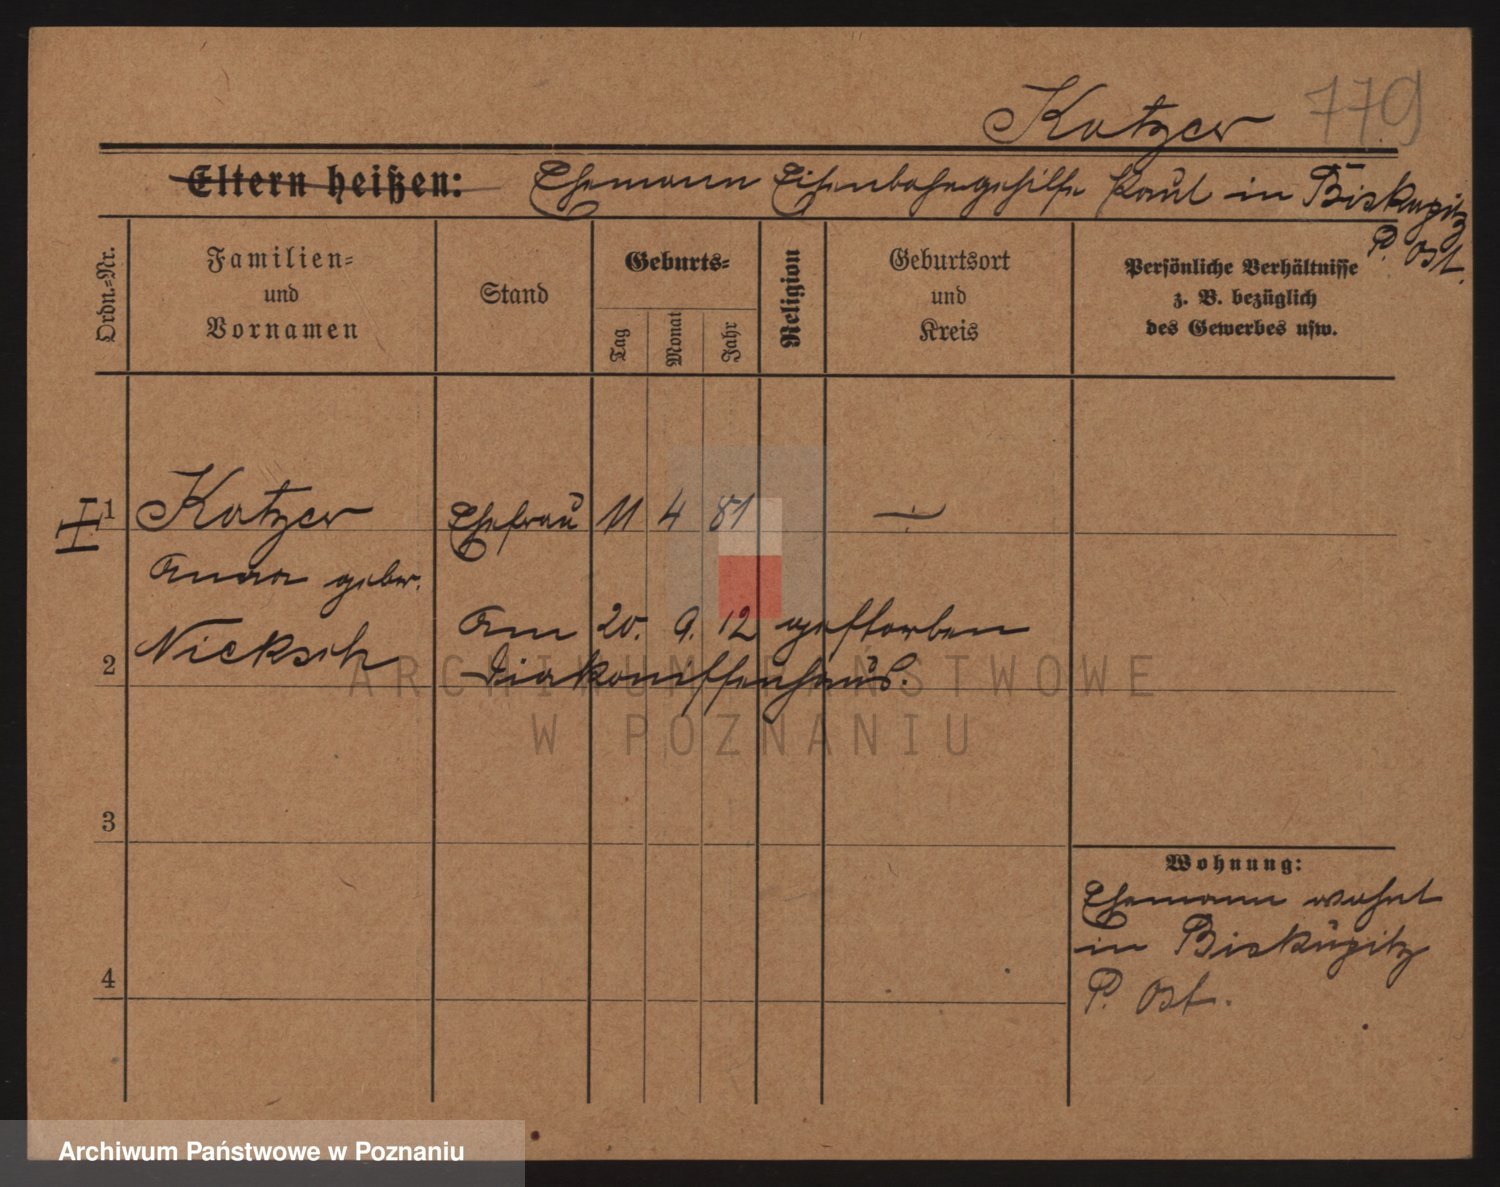 Katzer 779
Eltern heißen: Ehemann Eisenbahngehilfe Paul in Biskupitz
P. Ost.
Ordn.-Nr.
Familien-
und
Vornamen
Stand
Geburts-
Tag
Monat
Jahr
Religion
Geburtsort
und
Kreis
Persönliche Verhältnisse
z. B. bezüglich
des Gewerbes usw.
1 Katzer Ehefrau 11 4 81 —
Anna gebor.
Nicksch
Am 20. 9. 12 gestorben
2
Diakonissenhaus.
ARCHIWUM PAŃSTWOWE
W POZNANIU
3
Wohnung:
Ehemann wohnt
in Biskupitz
P. Ost.
4
Archiwum Państwowe w Poznaniu